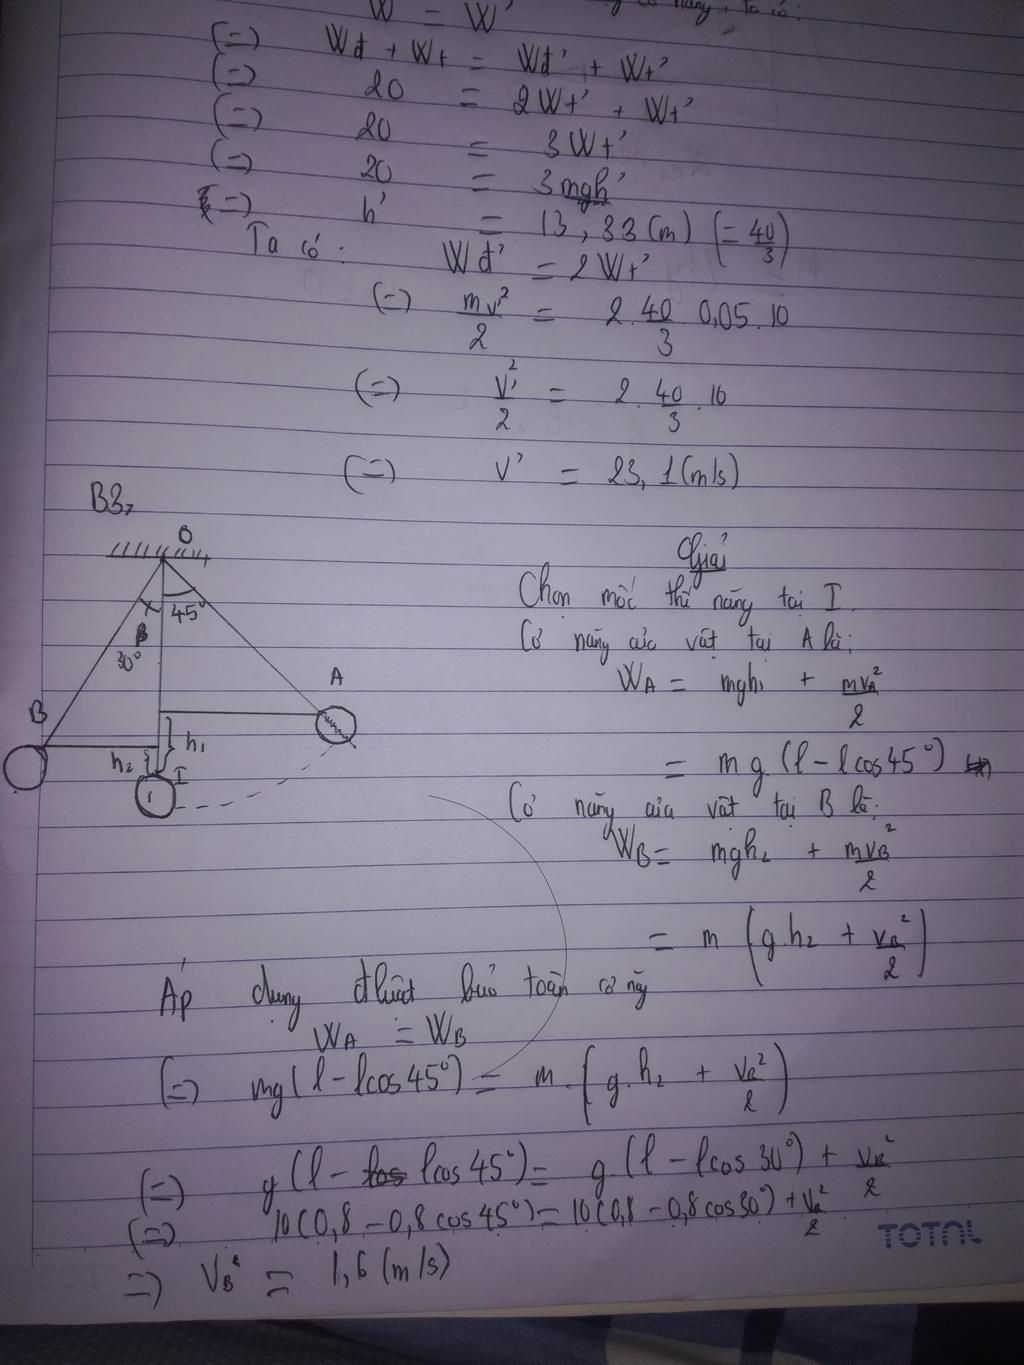 W = W'
năng, ta có:
(=) Wđ + Wt = Wđ' + Wt'
(=) 20 = 2Wt' + Wt'
(=) 20 = 3Wt'
(=) 20 = 3mgh'
(=) h' = 13,33(m) (= 40/3)
Ta có: Wđ' = 2Wt'
(=) mv'²/2 = 2. 40/3 . 0,05 . 10
(=) v'²/2 = 2. 40/3 . 10
(=) v' = 23,1(m/s)
B3,
O
45°
30°
A
B
h₁
h₂
I
Giải
Chọn mốc thế năng tại I.
Cơ năng của vật tại A là:
WA = mgh₁ + mvA²/2
= mg.(l - lcos45°)
Cơ năng của vật tại B là:
WB = mgh₂ + mvB²/2
= m (g.h₂ + vB²/2)
Áp dụng đluật bảo toàn cơ năg
WA = WB
(=) mg(l - lcos45°) = m.(g.h₂ + vB²/2)
(=) g(l - lcos45°) = g(l - lcos30°) + vB²/2
(=) 10(0,8 - 0,8cos45°) = 10(0,8 - 0,8cos30°) + vB²/2
=) VB = 1,6(m/s)
TOTAL